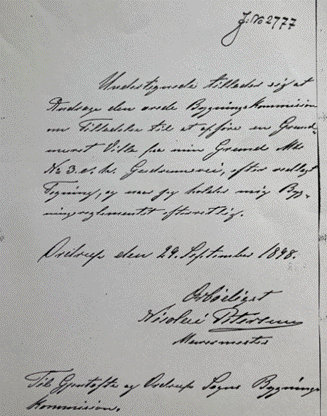 J. No 2777
Undertegnede tillader sig at
Andrage den ærede Bygningskommision
om Tilladelse til at opføre en Grund-
muret Villa paa min Grund Mtr
No 3 Gardermarie, efter vedlagt
Tegning, og vil jeg holde mig Byg-
ningreglementet efterrettig.
Ordrup den 29. September 1898.
Ærbødigst
Nicolai Petersen
Murermester
Til Gjentofte og Ordrup Sogns Bygnings
Kommision.